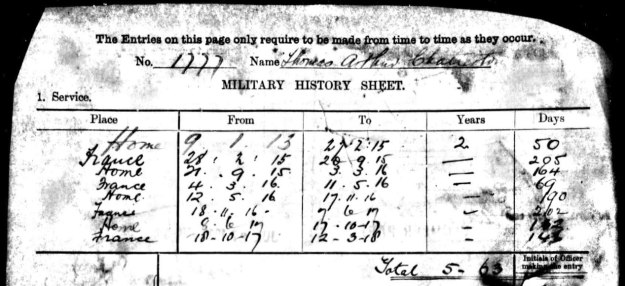 The Entries on this page only require to be made from time to time as they occur.
No. 1777 Name Thomas Arthur
MILITARY HISTORY SHEET.
1. Service.
Place From To Years Days
Home 9 1 13 27.2.15 2 50
France 28.2.15 20 9.15 — 205
Home 21.9.15 3.3.16 — 164
France 4.3.16 11.5.16 — 69
Home 12.5.16 17.11.16 190
France 18.11.16 6 17 202
Home 6 17 17-10-17 —
France 18-10-17 12-3-18 —
Total 5-63
Initials of Officer
making the entry